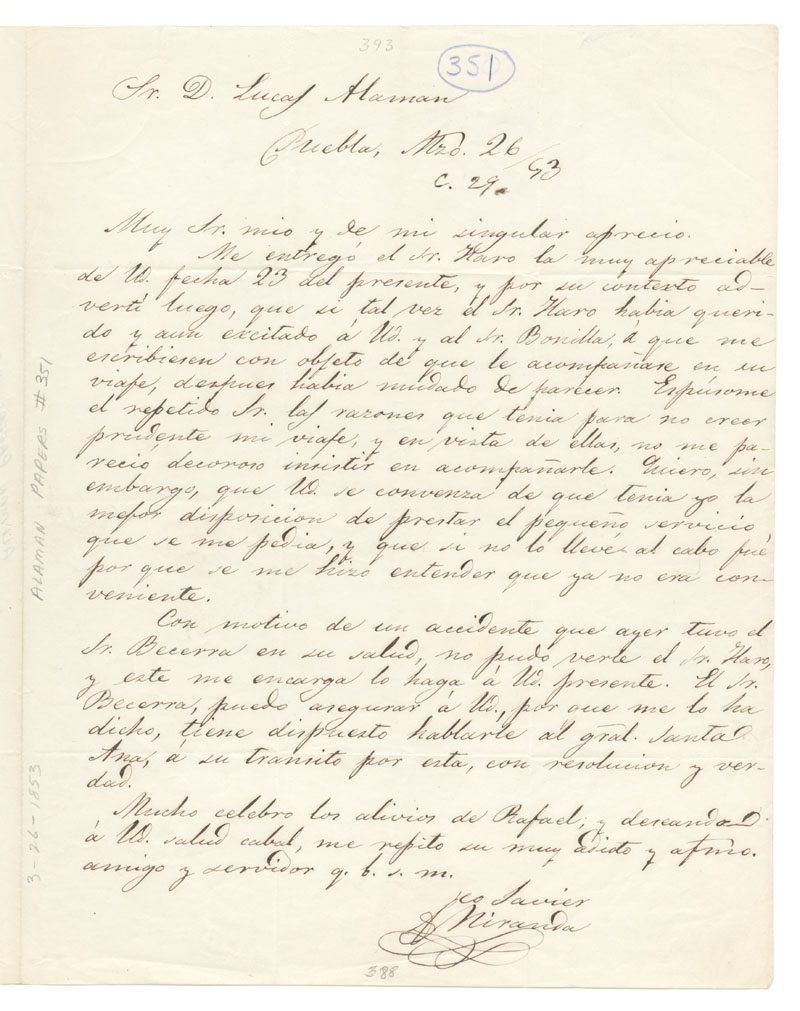 393
351
Sr. D. Lucas Alaman
Puebla, Mzo. 26/53
C. 29.
Muy Sr. mio y de mi singular aprecio.
Me entregó el Sr. Haro la muy apreciable
de Ud. fecha 23 del presente, y por su contexto ad-
vertí luego, que si tal vez el Sr. Haro habia queri-
do y aun excitado á Ud. y al Sr. Bonilla, á que me
escribiesen con objeto de que le acompañase en su
viaje, despues habia mudado de parecer. Espúsome
el repetido Sr. las razones que tenia para no creer
prudente mi viaje, y en vista de ellas, no me pa-
reció decoroso insistir en acompañarle. Quiero, sin
embargo, que Ud. se convenza de que tenia yo la
mejor disposicion de prestar el pequeño servicio
que se me pedia, y que si no lo llevé al cabo fué
por que se me hizo entender que ya no era con-
veniente.
Con motivo de un accidente que ayer tuvo el
Sr. Becerra en su salud, no pudo verle el Sr. Haro,
y este me encarga lo haga a Ud. presente. El Sr.
Becerra, puedo asegurar á Ud., por que me lo ha
dicho, tiene dispuesto hablarle al gral. Santa
Ana, á su transito por esta, con resolucion y ver-
dad.
Mucho celebro los alivios de Rafael, y deseando
á Ud. salud cabal, me repito su muy adicto y afmo.
amigo y servidor q. b. s. m.
Fco Javier
Miranda
388
ALAMAN PAPERS # 351
3-26-1853